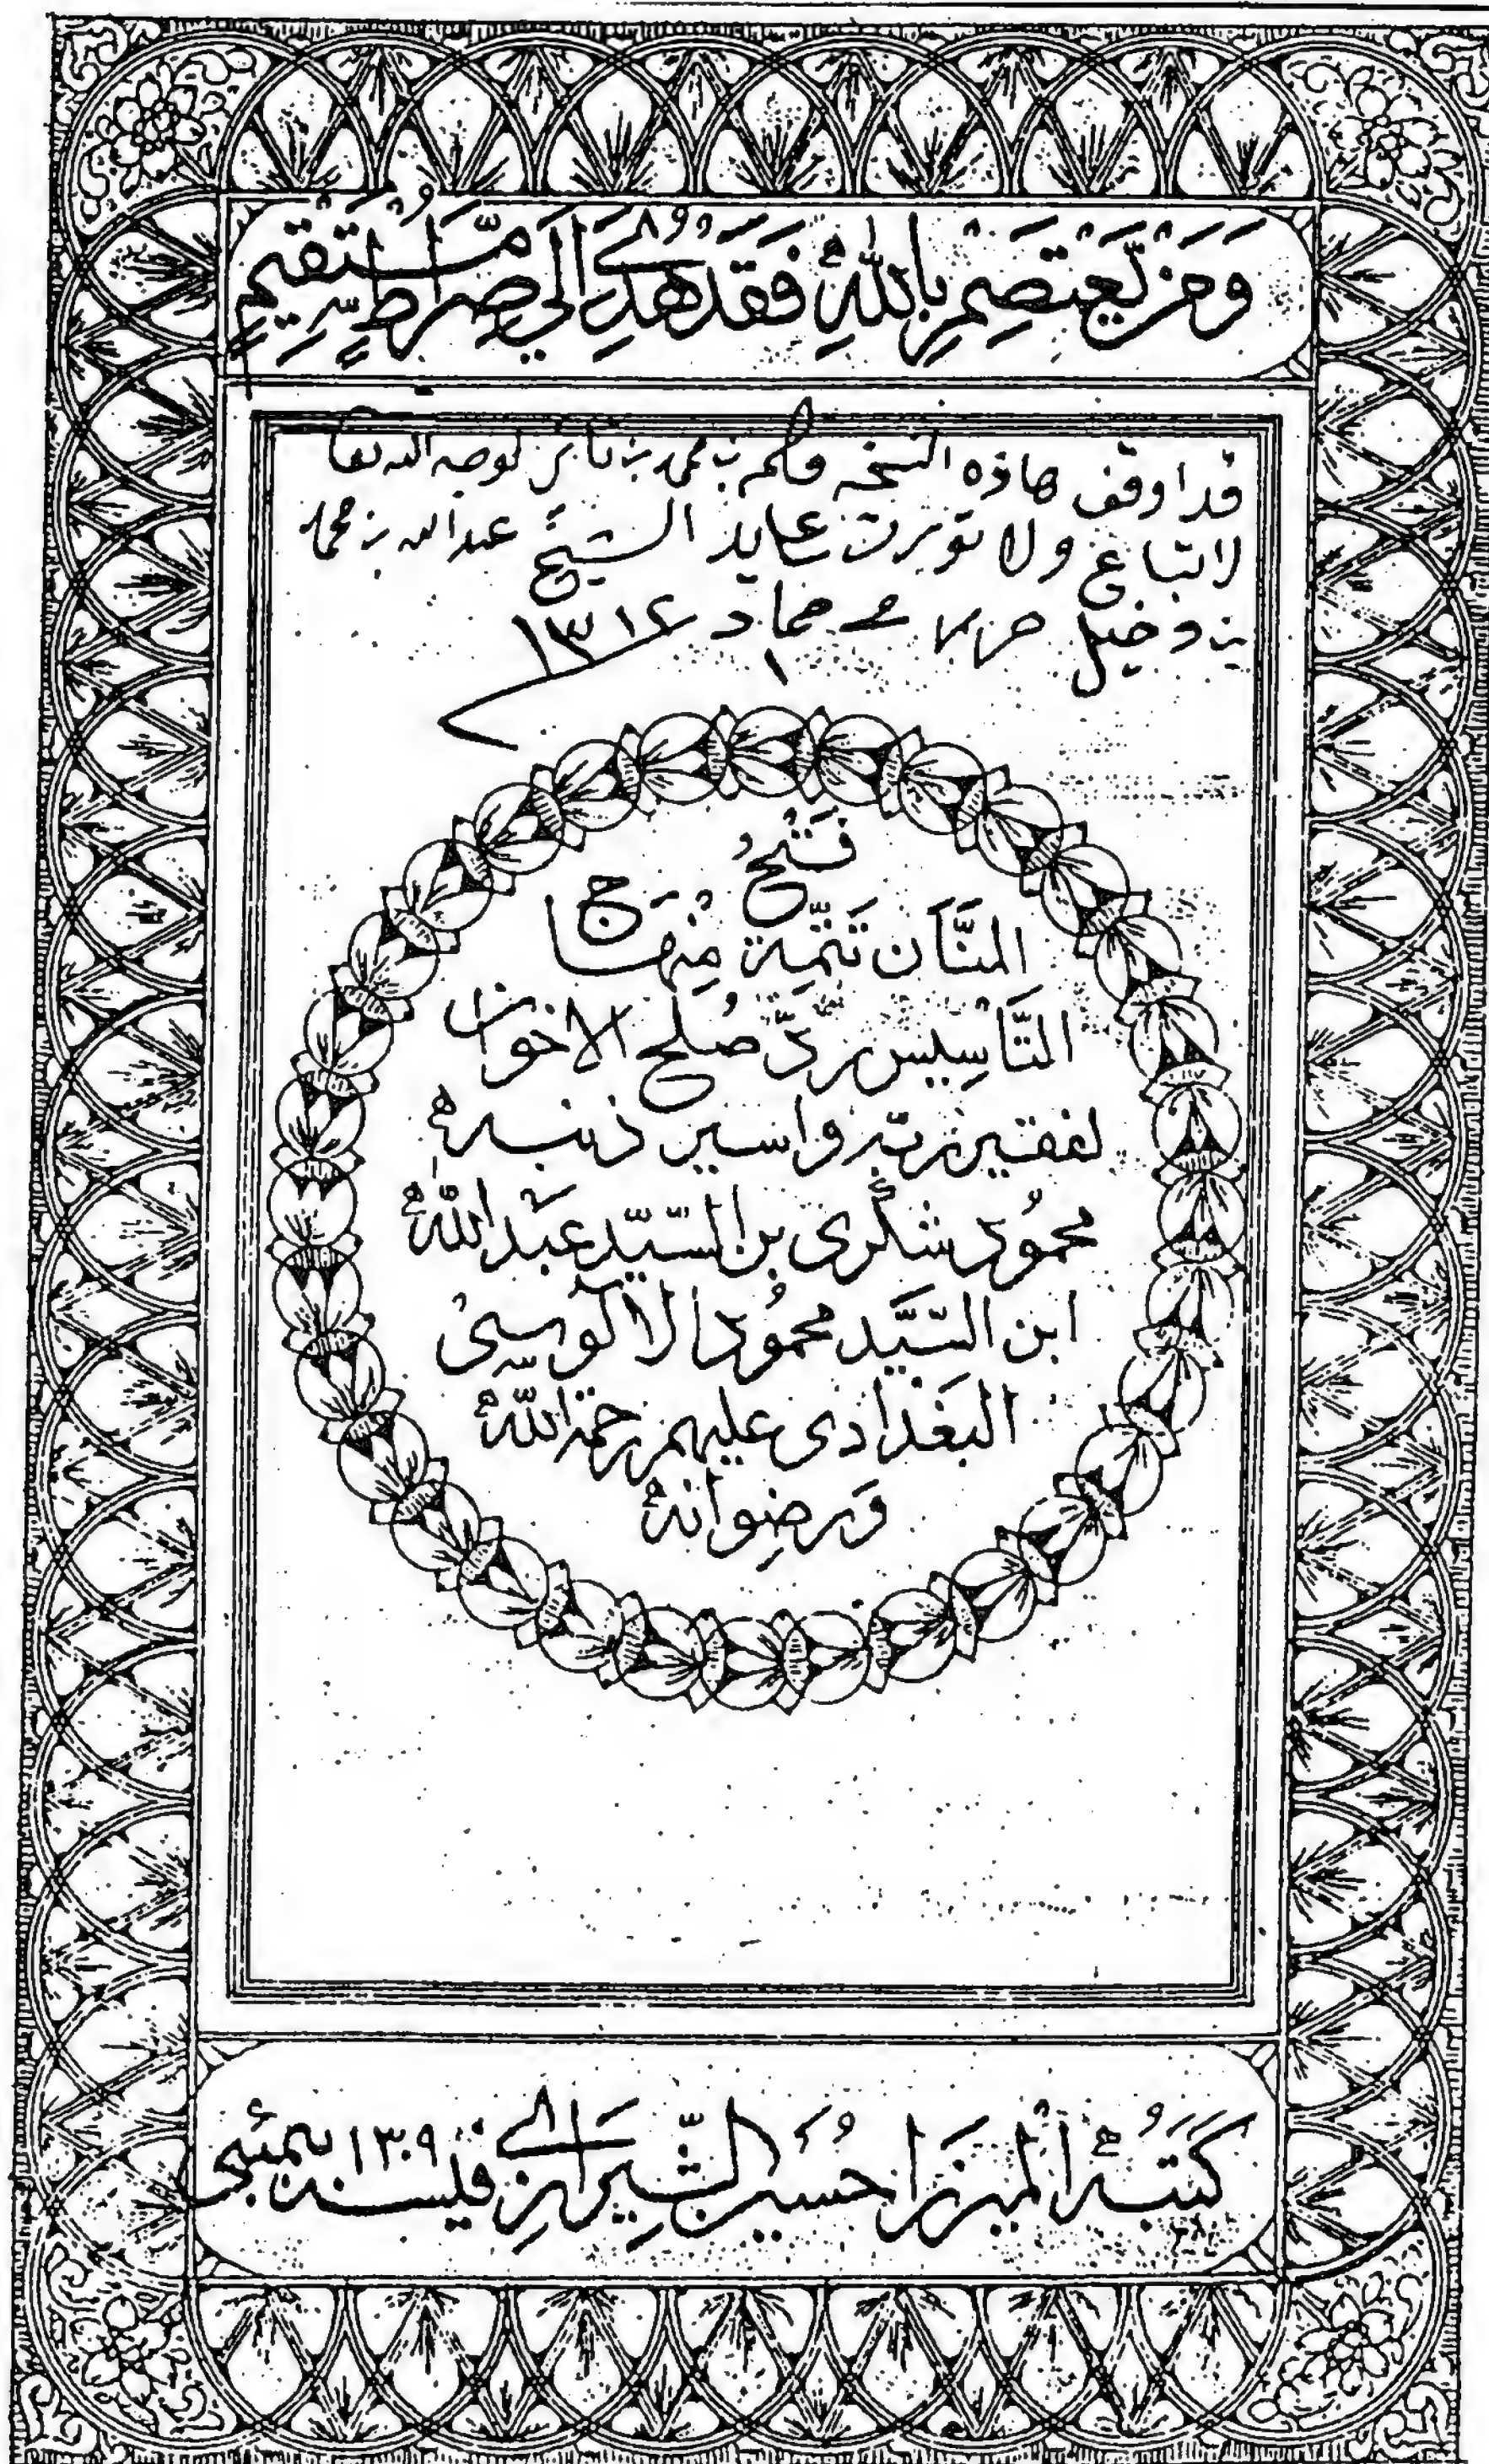 وَمَنْ يَعْتَصِمْ بِاللّٰهِ فَقَدْ هُدِيَ اِلٰي صِرَاطٍ مُّسْتَقِيمٍ
قد اوقف هاذه النسخه بن محمد بن لوجه الله تعا
لا تباع ولا تورث عايد الشيخ عبدالله بن محمد
بن دخيل حرر في جماد ١ ١٣١٤
فَتْحُ
المَنَّان تَتِمَّة مِنْهَاج
التَّأسِيس رَدّ صُلح الاخوان
لفقير ربّه واسير ذنبه
محمُود شكرى بن السّيّد عَبْدالله
ابن السَّيَّد محمُود الالوسى
البَغْدادى عليهم رحمة الله
وَرضِوانه
كَتَبَهُ الْمِيرْزَا حُسَيْن الشِّيرَازِي فِي سنه ١٣٠٩ بمبئي